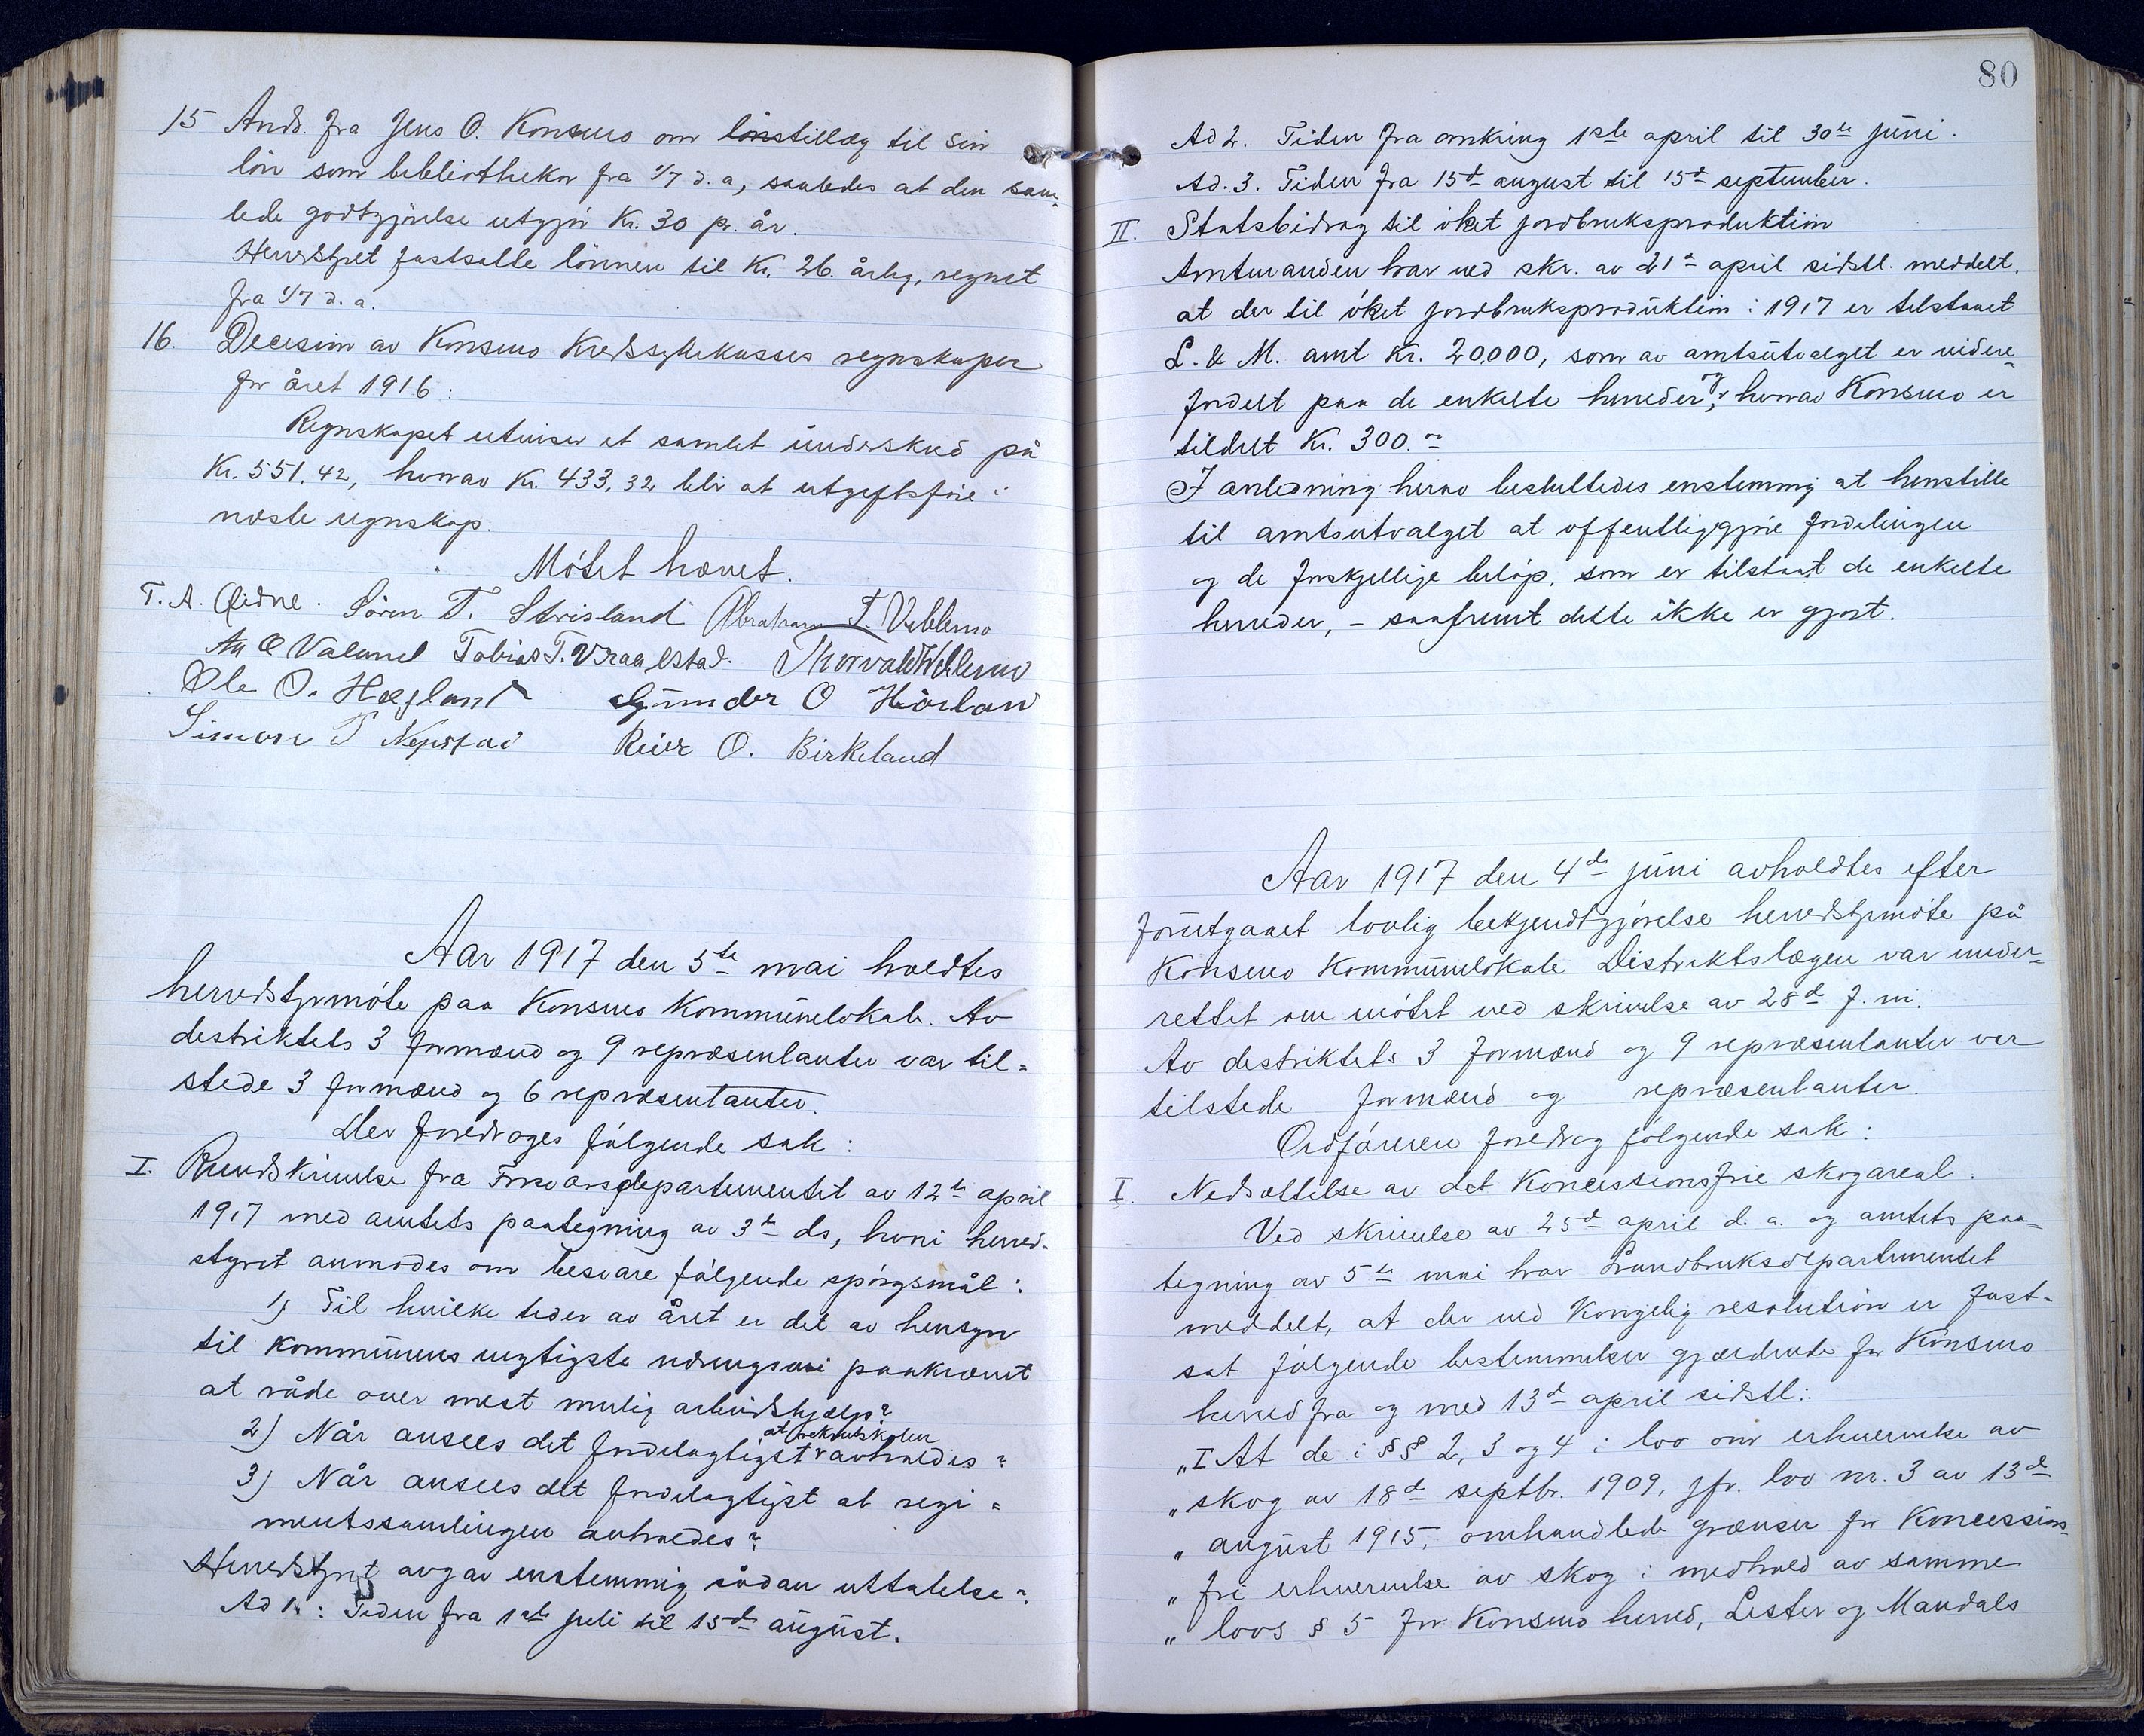 15 Ands. fra Jens O. Konsmo om lönstillæg til sin
lön som bibliothekar fra 1/7 d. a, saaledes at den sam-
lede godtgjörelse utgjör Kr. 30 pr. år.
Herredstyret fastsatte lönnen til Kr. 26 årlig, regnet
fra 1/7 d. a.
16. Decision av Konsmo Kredssykekasses regnskaper
for året 1916:
Regnskapet utviser et samlet underskud på
Kr. 551,42, hvorav Kr. 433,32 blir at utgiftsföre i
næste regnskap.
Mötet hævet.
T. A. Eidne. Sören T. Strisland Abraham T. Veblemo
O Valand Tobias T. Vraalstad. Thorvald Weblemo
Ole O. Hægland Gunder O Hörland
Simon T Nepstad Reier O. Birkeland
Aar 1917 den 5te mai holdtes
herredstyrmöte paa Konsmo Kommunelokale. Av
destriktets 3 formænd og 9 repræsentanter var til-
stede 3 formænd og 6 repræsentanter.
Der foredroges fölgende sak:
I. Rundskrivelse fra Forsvarsdepartementet av 12te april
1917 med amtets paategning av 3de ds, hvori herred-
styret anmodes om besvare fölgende spörgsmål:
1) Til hvilke tider av året er det av hensyn
til kommunens vigtigste næringsvei paakrævet
at råde over mest mulig arbeidshjælp?
2) Når ansees det fordelagtigst at rekrutskolen avholdes?
3) Når ansees det fordelagtigst at regi-
mentssamlingen avholdes?
Herredstyret avgav enstemmig sådan uttalelse:
Ad 1.: Tiden fra 1ste juli til 15de august.
80
Ad 2. Tiden fra omkring 1ste april til 30te juni.
Ad. 3. Tiden fra 15de august til 15de september.
II. Statsbidrag til öket jordbruksproduktion
Amtmanden har ved skr. av 21de april sidstl. meddelt,
at der til öket jordbruksproduktion i 1917 er tilstaaet
L. & M. amt Kr. 20.000, som av amtsutvalget er videre
fordelt paa de enkelte herreder, hvorav Konsmo er
tildelt Kr. 300.
I anledning herav besluttedes enstemmig at henstille
til amtsutvalget at offentliggjöre fordelingen
og de forskjellige belöp, som er tilstaat de enkelte
herreder, - saafremt dette ikke er gjort.
Aar 1917 den 4de juni avholdtes efter
forutgaaet lovlig bekjendtgjörelse herredstyrmöte på
Konsmo Kommunelokale Distriktslægen var under-
rettet om mötet ved skrivelse av 28de f. m.
Av destriktets 3 formænd og 9 repræsentanter var
tilstede formænd og repræsentanter.
Ordföreren foredrog fölgende sak:
I. Nedsættelse av det Koncessionsfrie skogareal.
Ved skrivelse av 25de april d. a. og amtets paa-
tegning av 5te mai har Landbruksdepartementet
meddelt, at der ved Kongelig resolution er fast-
sat fölgende bestemmelser gjældende for Konsmo
herred fra og med 13de april sidstl.:
"I At de i §§ 2, 3 og 4 i lov om erhvervelse av
" skog av 18de septbr. 1909, jfr. lov nr. 3 av 13de
" august 1915, omhandlede grænser for Koncessions-
" fri erhvervelse av skog i medhold av samme
" lovs § 5 for Konsmo herred, Lister og Mandals